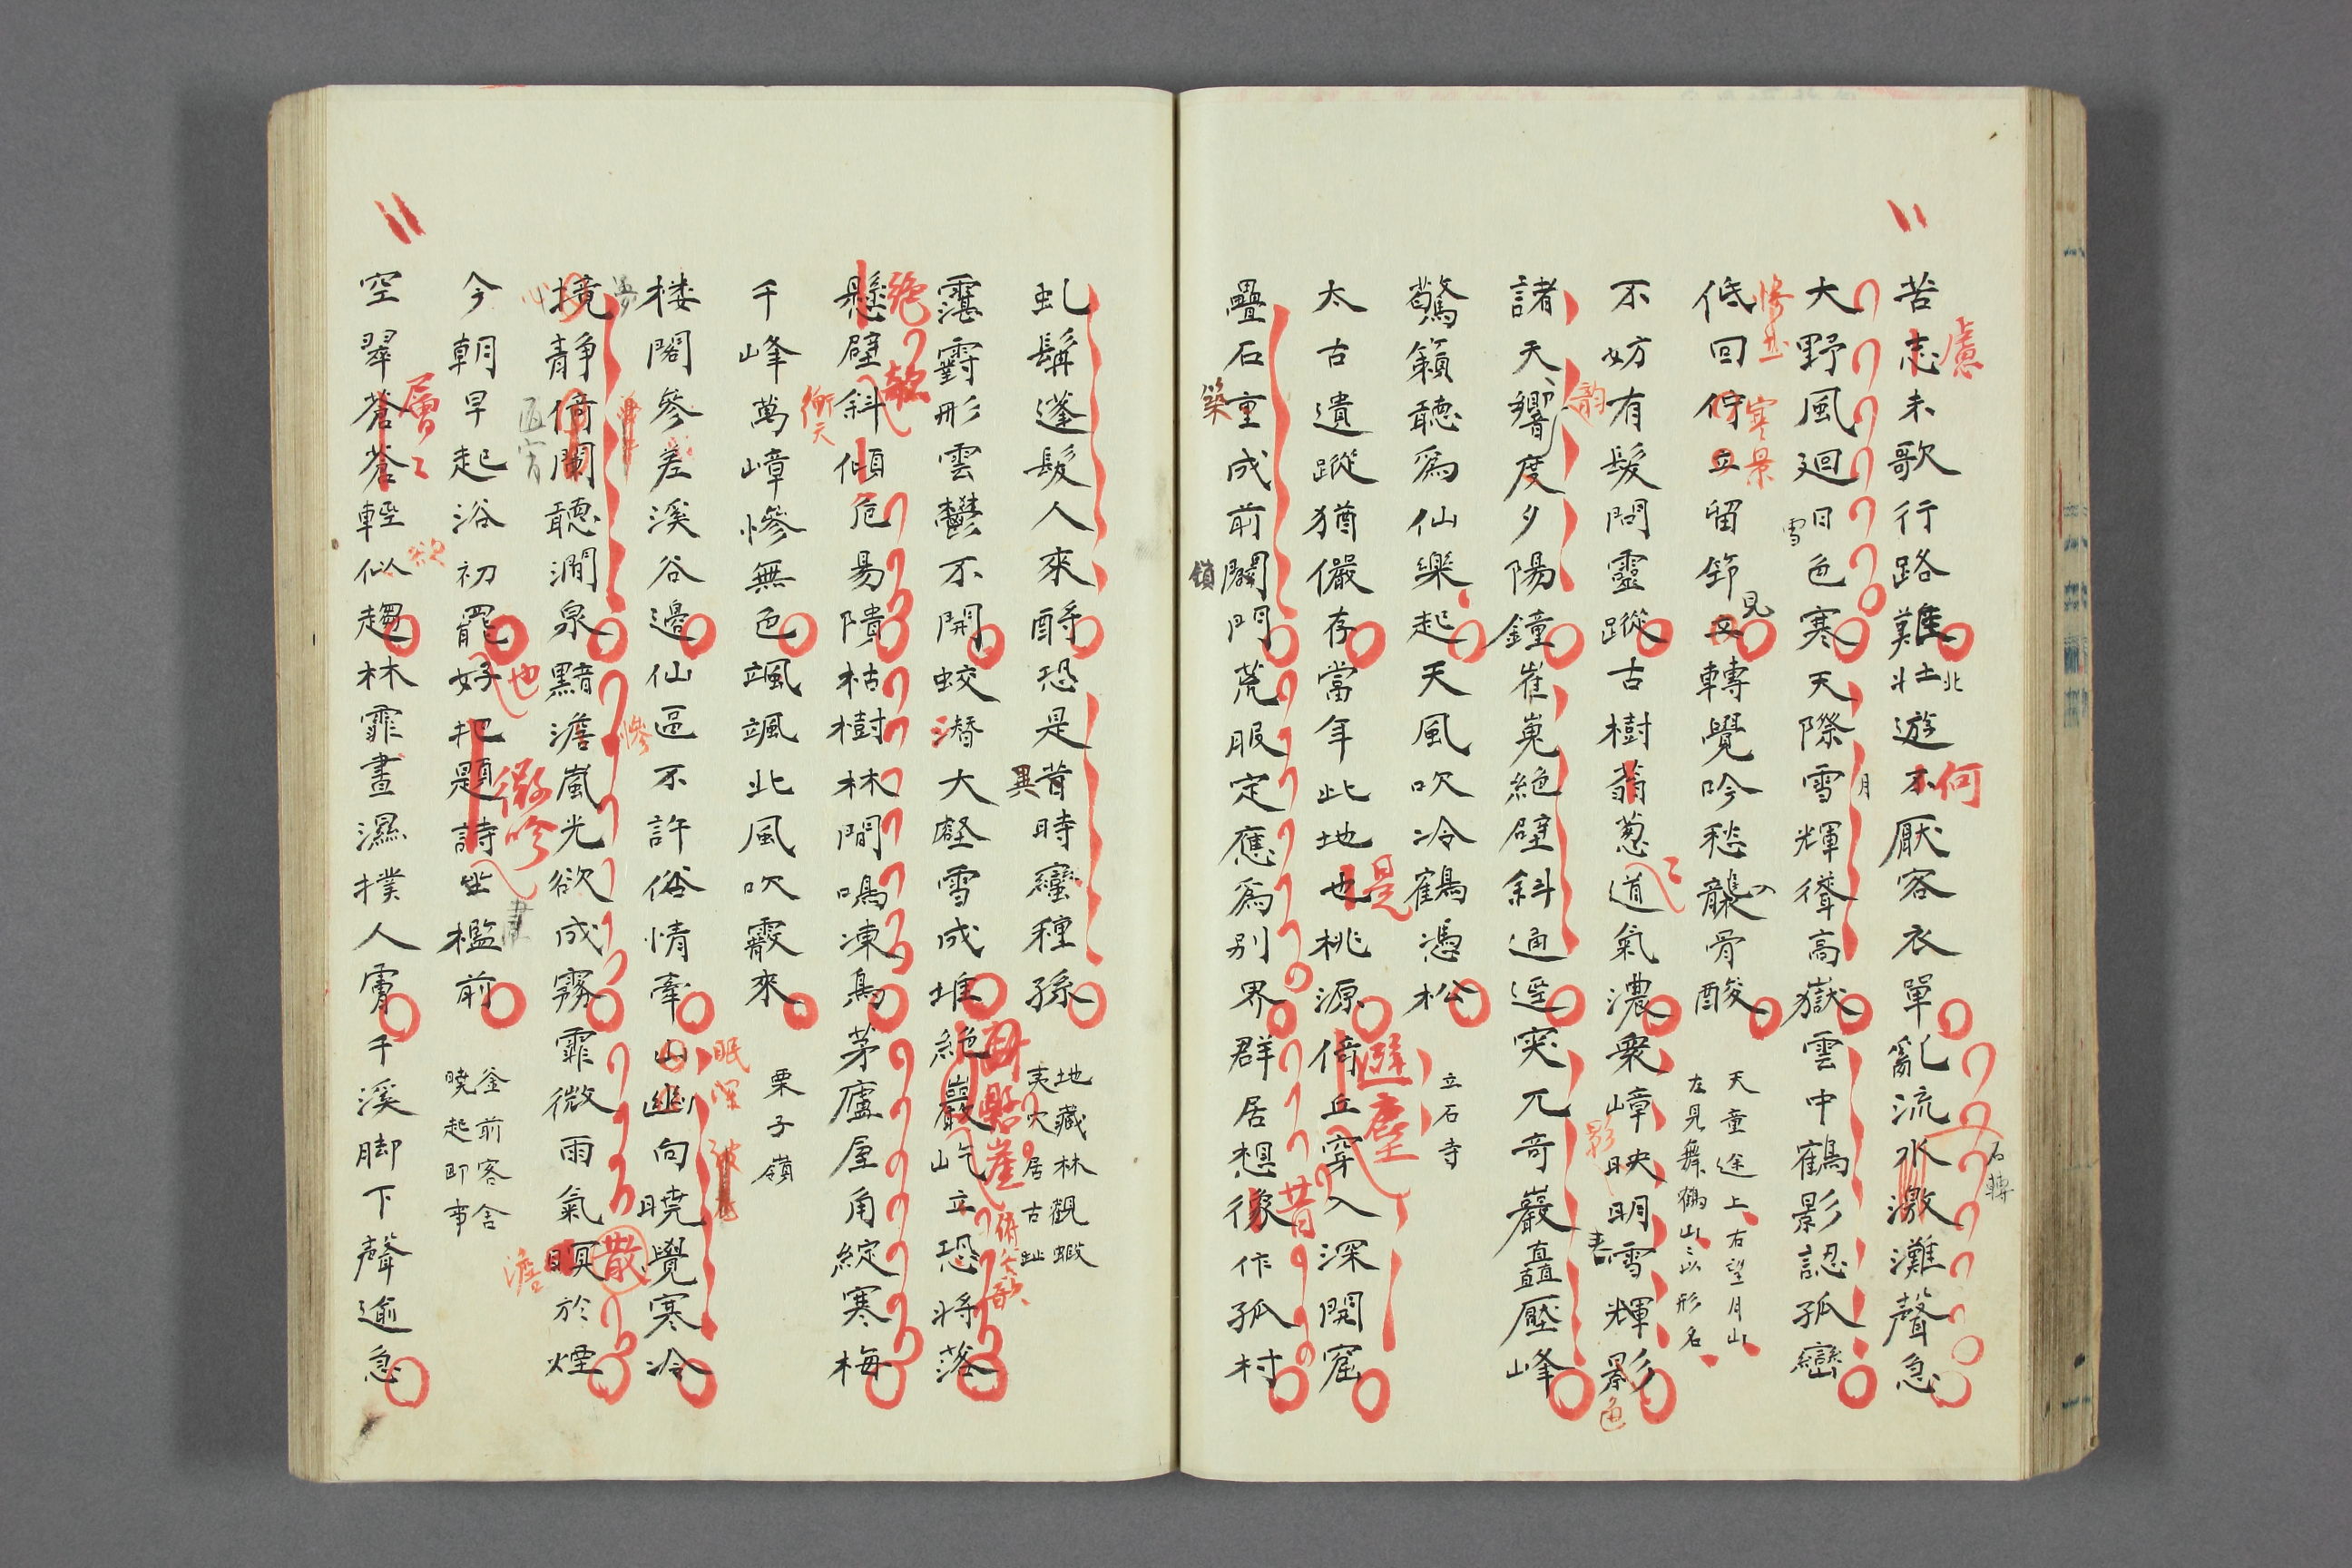 苦志未歌行路難壯遊不厭客衣單亂流水激灘聲急
慮
北
何
石轉
大野風廻日色寒天際雪輝聳高嶽雲中鶴影認孤巒
雪
月
低回佇立留筇又轉覺吟愁龍骨酸
寒景
見
天童途上右望月山
左見舞鶴山々以形名
不妨有髮問靈蹤古樹蓊葱道氣濃衆嶂映明雪輝影
影
色
諸天響度夕陽鐘崔嵬絶壁斜通逕突兀奇巖矗壓峰
韵
驚籟聽爲仙樂起天風吹冷鶴憑松
立石寺
太古遺蹤猶儼存當年此地也桃源倚丘穿入深開窟
是
避塵
疊石重成前闢門荒服定應爲別界群居想像作孤村
築
鎖
昔
虬髯蓬髮人來酹恐是昔時蠻種孫
異
地藏林觀蝦
夷穴居古趾
靄霨形雲鬱不開蛟潛大壑雪成堆絶巖屹立恐將落
懸崖
懸壁斜傾危易隤枯樹林間鳴凍鳥茅廬屋角綻寒梅
絶
欹
千峰萬嶂慘無色颯颯北風吹霰來
衝天
栗子嶺
楼閣參差溪谷邊仙區不許俗情牽山幽向曉覺寒冷
眠
境靜倚闌聽澗泉黯澹嵐光欲成霧霏微雨氣暝於煙
慘
散
澹
今朝早起浴初罷好把題詩坐檻前
也
微吟
釜前客舍
曉起即事
空翠蒼蒼輕似趨林霏晝濕撲人膚千溪脚下聲逾急
層々
欲